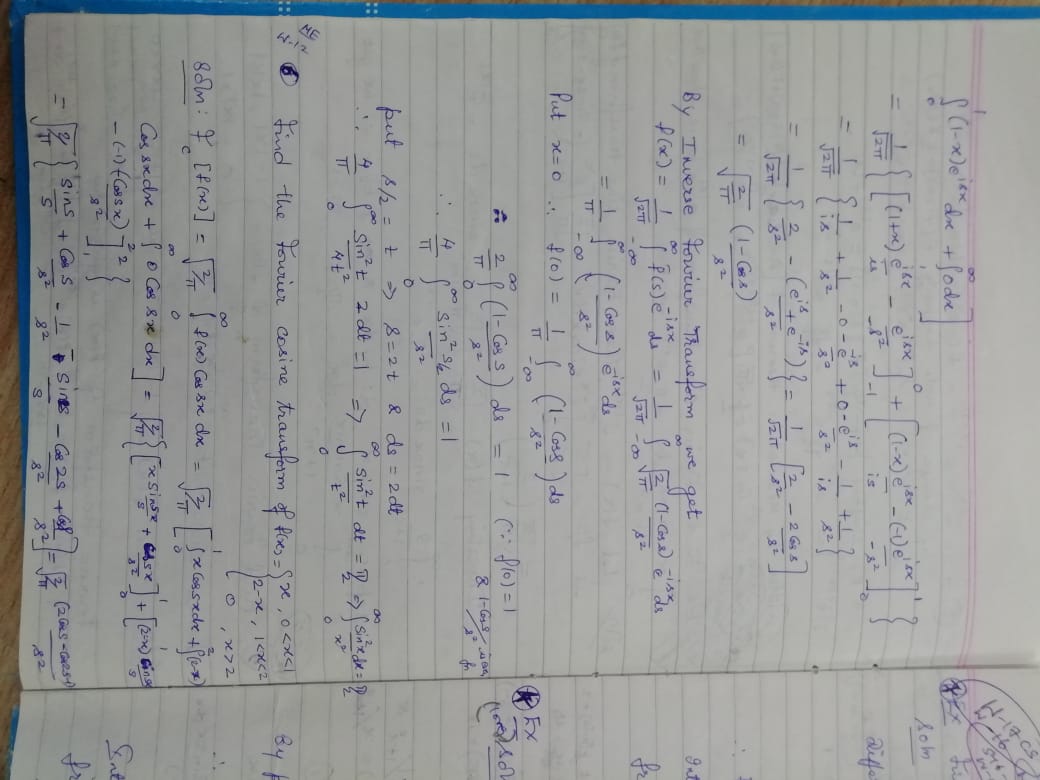 ∫₀¹ (1-x)e^{isx} dx + ∫₁^∞ 0dx ]
= 1/√2π { [ (1+x) e^{isx}/is - e^{isx}/-s² ]₋₁⁰ + [ (1-x) e^{isx}/is - (-1) e^{isx}/-s² ]₀¹ }
= 1/√2π { 1/is + 1/s² - 0 - e^{-is}/s² + 0 - e^{is}/s² - 1/is + 1/s² }
= 1/√2π { 2/s² - (e^{is} + e^{-is})/s² } = 1/√2π [ 2/s² - 2Cos s/s² ]
= √2/π (1-Cos s)/s²
By Inverse Fourier Transform we get
f(x) = 1/√2π ∫₋∞^∞ f(s) e^{-isx} ds = 1/√2π ∫₋∞^∞ √2/π (1-Cos s)/s² e^{-isx} ds
= 1/π ∫₋∞^∞ (1-Cos s/s²) e^{-isx} ds
Put x=0 ∴ f(0) = 1/π ∫₋∞^∞ (1-Cos s/s²) ds
2/π ∫₀^∞ (1-Cos s/s²) ds = 1 (∵ f(0)=1
& 1-Cos s/s²
∴ 4/π ∫₀^∞ Sin² s/2 / s² ds = 1
Put s/2 = t ⇒ s=2t & ds=2dt
∴ 4/π ∫₀^∞ Sin²t/4t² 2dt = 1 ⇒ ∫₀^∞ Sin²t/t² dt = π/2 ⇒ ∫₀^∞ Sin²x/x² dx = π/2
W-12
6 Find the Fourier cosine transform of f(x) = { x, 0<x<1
2-x, 1<x<2
0, x>2
Soln: F_c [f(x)] = √2/π ∫₀^∞ f(x) Cos sx dx = √2/π [ ∫₀¹ x Cos sx dx + ∫₁² (2-x)
Cos sx dx + ∫₂^∞ 0 Cos sx dx ] = √2/π { [ x Sin sx/s + Cos sx/s² ]₀¹ + [ (2-x) Sin sx/s
- (-1) (-Cos sx)/s² ]₁² }
= √2/π { Sin s/s + Cos s/s² - 1/s² - Sin s/s - Cos 2s/s² + Cos s/s² } = √2/π (2Cos s - Cos 2s - 1)/s²
W-17 CS
Ex
Soln
Ex
Soln
By